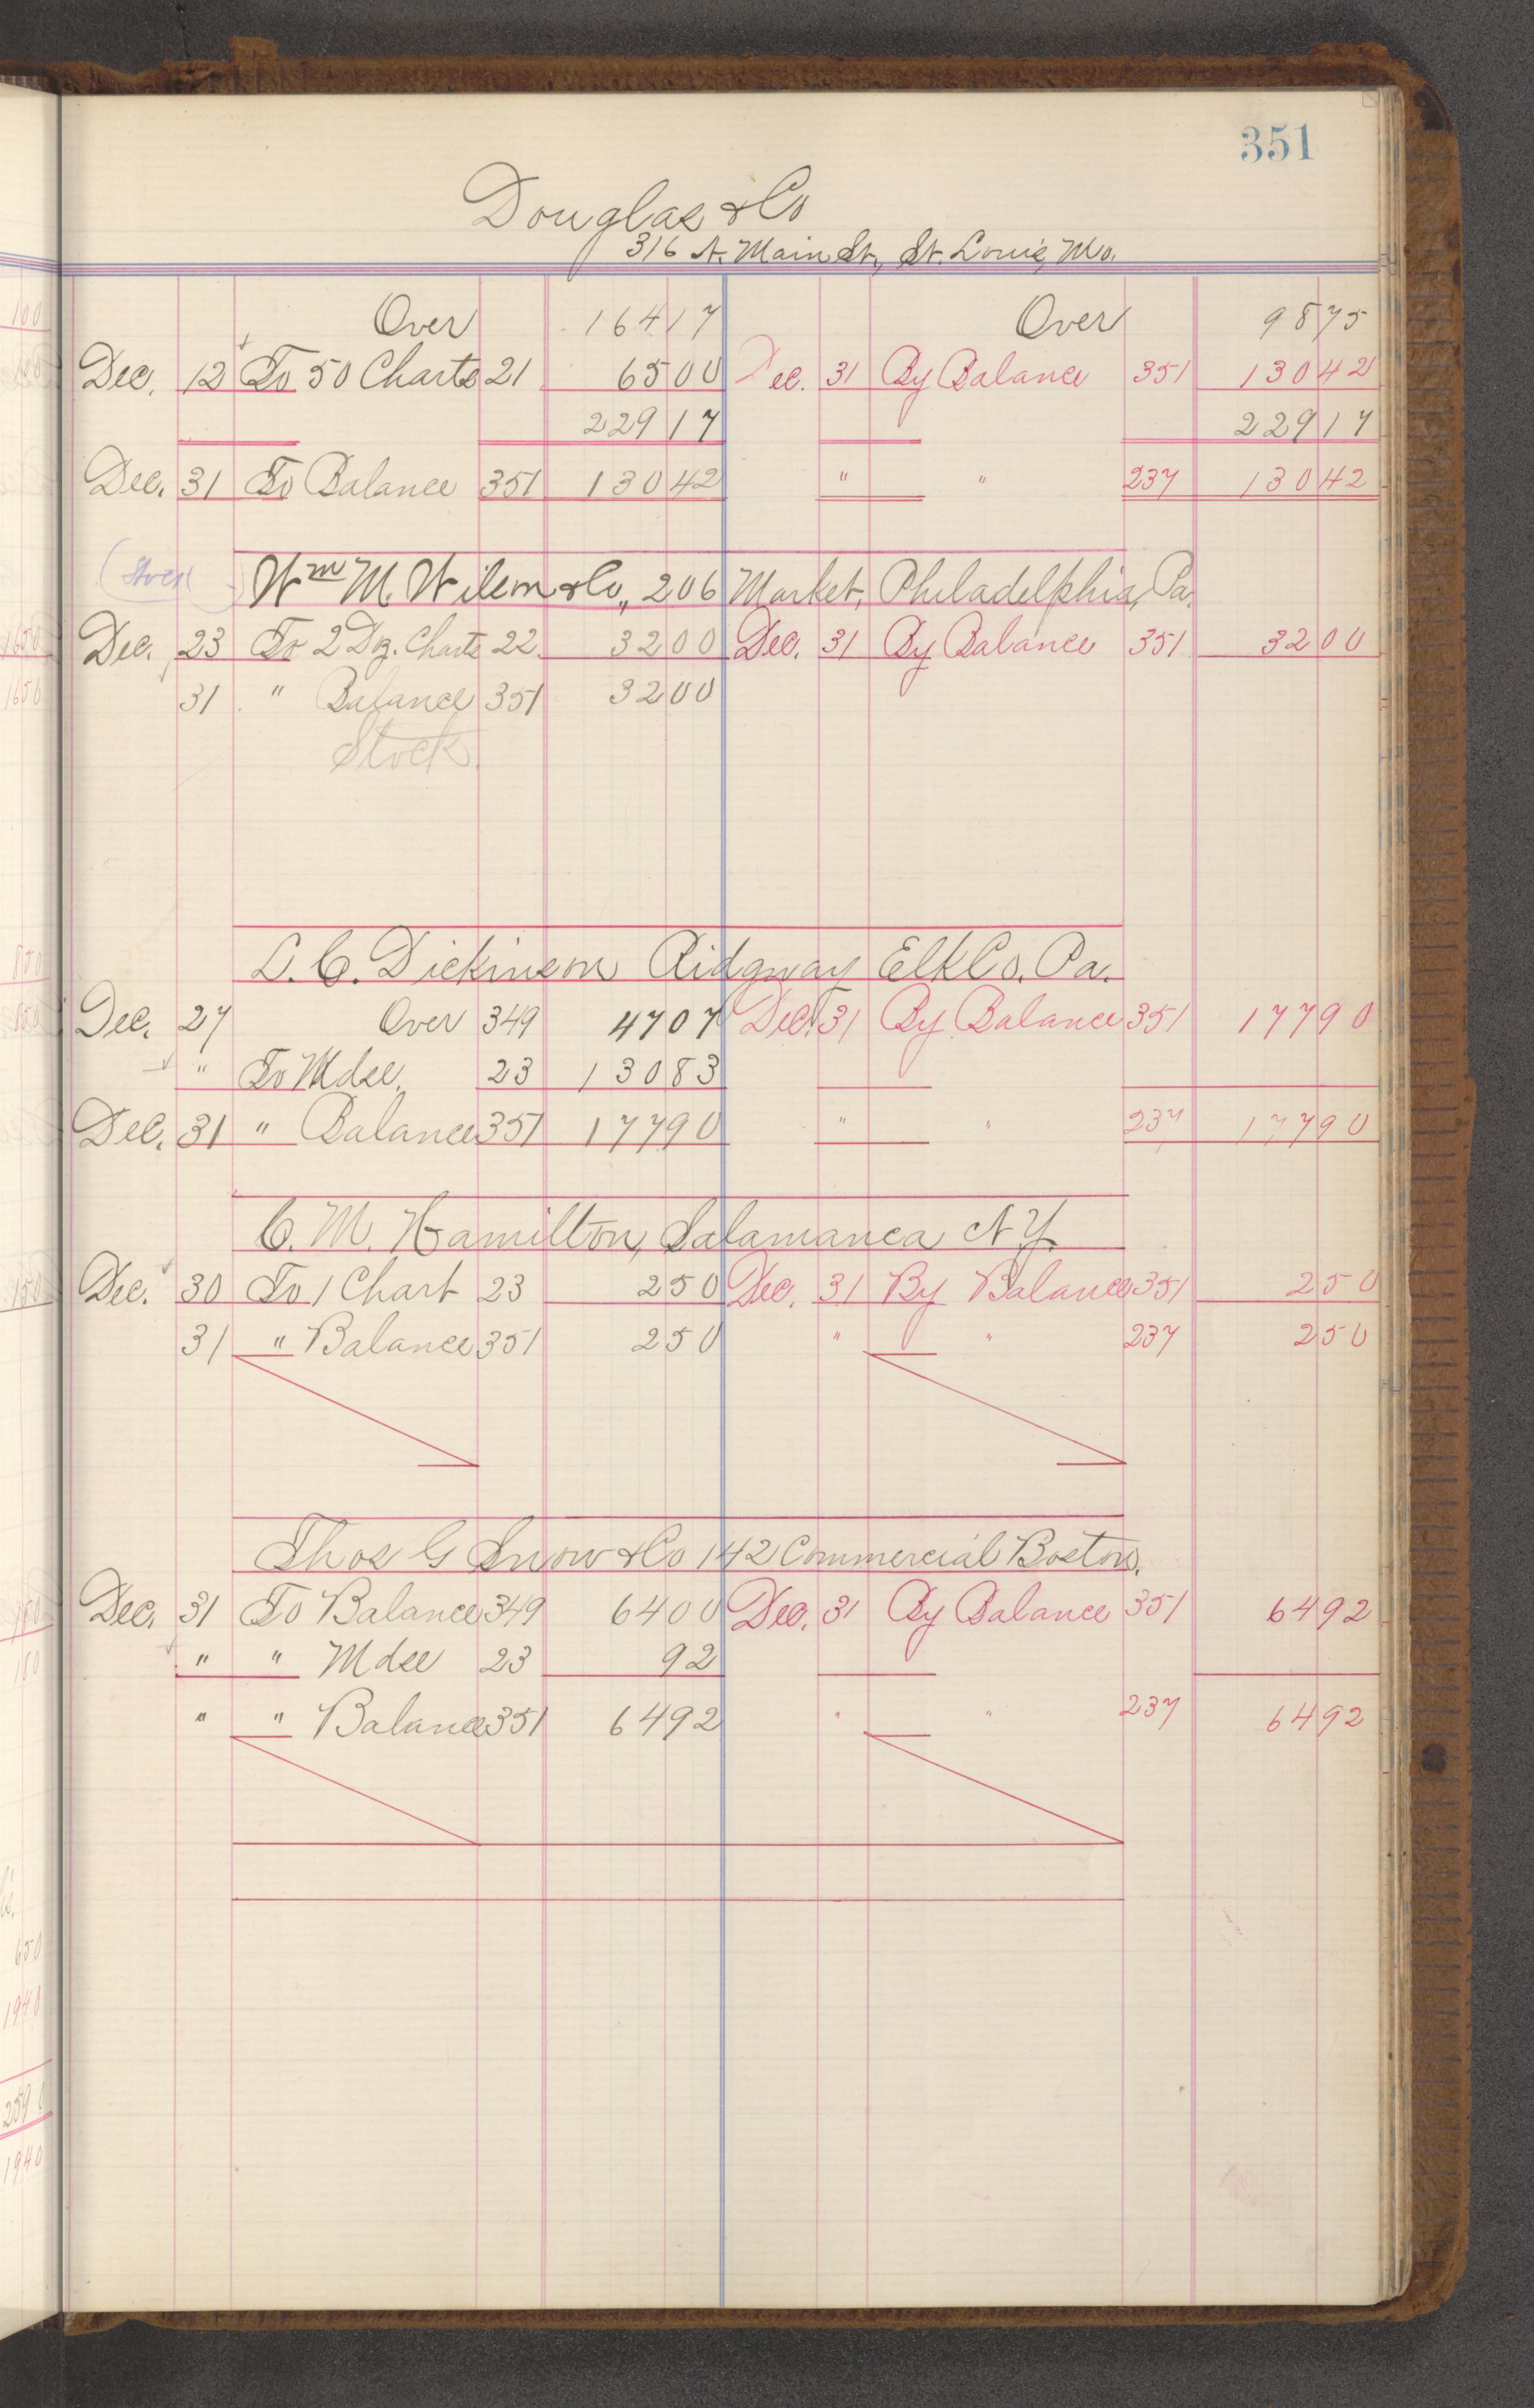 351
Douglas & Co
316 N. Main St., St. Louis, Mo.
Over 164 17 Over 98 75
Dec. 12 To 50 Charts 21 65 00 Dec. 31 By Balance 351 130 42
229 17 229 17
Dec. 31 To Balance 351 130 42 " " 237 130 42
(Stock) Wm M. Wilson & Co., 206 Market, Philadelphia, Pa.
Dec. 23 To 2 Doz. Charts 22 32 00 Dec. 31 By Balance 351 32 00
31 " Balance 351 32 00
Stock
L. C. Dickinson Ridgway Elk Co. Pa.
Dec. 27 Over 349 47 07 Dec. 31 By Balance 351 177 90
" To Mdse. 23 130 83
Dec. 31 " Balance 351 177 90 " " 237 177 90
C. M. Hamilton, Salamanca N.Y.
Dec. 30 To 1 Chart 23 2 50 Dec. 31 By Balance 351 2 50
31 " Balance 351 2 50 " " 237 2 50
Thos G Snow & Co 142 Commercial Boston.
Dec. 31 To Balance 349 64 00 Dec. 31 By Balance 351 64 92
" " Mdse 23 92
" " Balance 351 64 92 " " 237 64 92